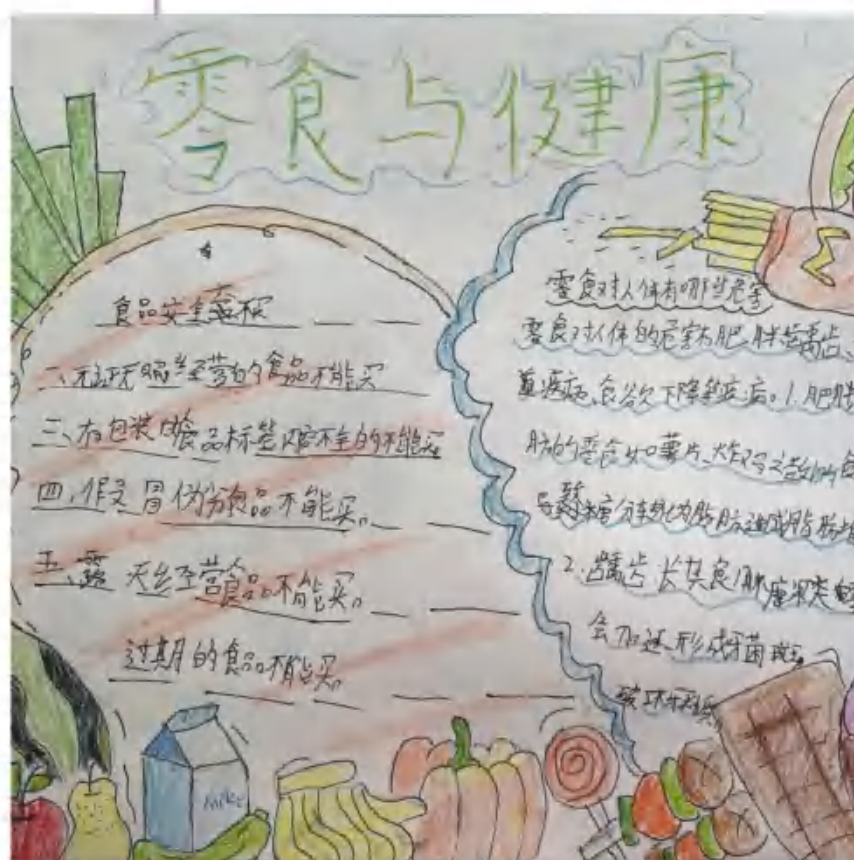 零食与健康
食品安全有六不买
二、无证无照经营的食品不能买
三、有包装的食品标签内容不全的不能买
四、假冒伪劣食品不能买。
五、露天经营食品不能买。
过期的食品不能买。
零食对人体有哪些危害
零食对人体的危害有肥胖龋齿、
食欲下降等疾病。1.肥胖
肪的零食如薯片、炸鸡之类的
糖分转化为脂肪造成脂肪
2.龋齿 长期食用糖果类
会加速形成牙菌斑。
破坏
milk